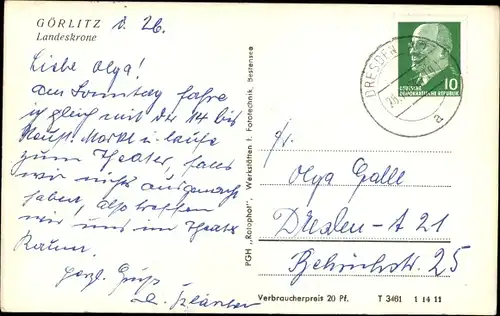 GÖRLITZ d. 26.
Landeskrone
Liebe Olga!
Am Sonntag fahre
ich gleich mit der 14 bis
Neust. Markt u. laufe
zum Theater, falls
wir nichts ausgemacht
haben, also treffen
wir uns im Theater
Herzl. Grüß
PGH „Rotophot", Werkstätten f. Fototechnik, Bestensee
DRESDEN
a
DEUTSCHE
DEMOKRATISCHE REPUBLIK
10
Fr.
Olga Galle
Dresden-A 21
25
Verbraucherpreis 20 Pf. T 3461 1 14 11